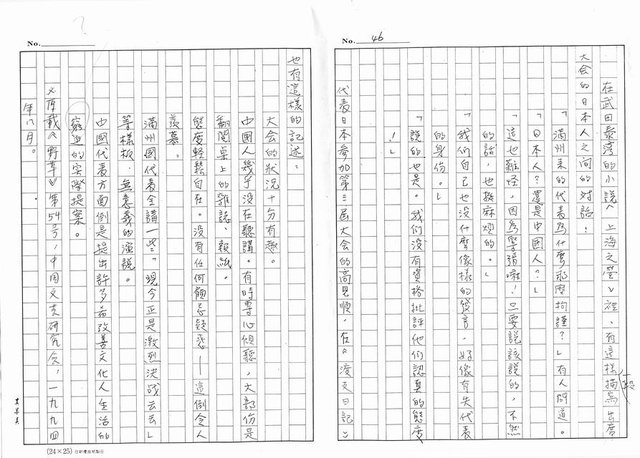 No. 46
在武田泰淳的小說《上海之螢》裡，有這樣描寫出席
大会的日本人之间的对話。
「滿州来的代表為什麼那麼拘謹？」有人問道。
「日本人？還是中國人？」
「這也難怪，因為緊張嘛！只要說該說的，不然
的話，也挺麻煩的。」
「我们自己也沒什麼像樣的發言，好像有失代表
的身份。」
「說的也是。我们沒有資格批評他们認真的態度
！」
代表日本參加第三屆大会的高見順，在《漫文日記》
No.
也有這樣的记述：
大会的狀況十分有趣。
中國人幾乎沒在聽講。有時専心傾聽，大部份是
翻閱桌上的雜誌、報紙。
態度輕鬆自在。沒有任何顧忌疑惑——這倒令人
羨慕。
滿州國代表全講一些「現今正是激烈決战云云」
等樣板、無意義的演說。
中國代表方面倒是提出許多為改善文化人生活的
窮迫的実際提案。
＊原載《野草》第54号，中国文芸研究会，一九九四
年八月。
(24×25)